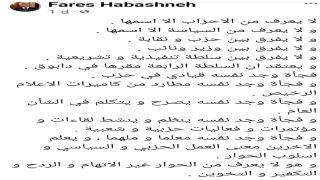 Fares Habashneh
1 d ·
لا يعرف من الاحزاب الا اسمها .
و لا يعرف من السياسة الا اسمها .
و لا يفرق بين حزب و نقابة .
و لا يفرق بين وزير ونائب .
و لا يفرق بين سلطة تنفيذية و تشريعية .
و يعتقد ان السلطة الرابعة مقرها في دابوق .
فجأة وجد نفسه قيادي في حزب .
و فجأة وجد نفسه مطارد من كاميرات الاعلام
الرخيص .
و فجأة وجد نفسه يصرح و يتكلم في الشأن
العام .
و فجأة وجد نفسه ينظم و ينشط لقاءات و
مؤتمرات و فعاليات حزبية و شعبية .
و فجأة وجد نفسه معلما و ملهما ، و يعلم
الاخرين معنى العمل الحزبي و السياسي و
اسلوب الحوار .
و هو لا يعرف من الحوار غير الاتهام و الردح و
التكفير و التخوين .